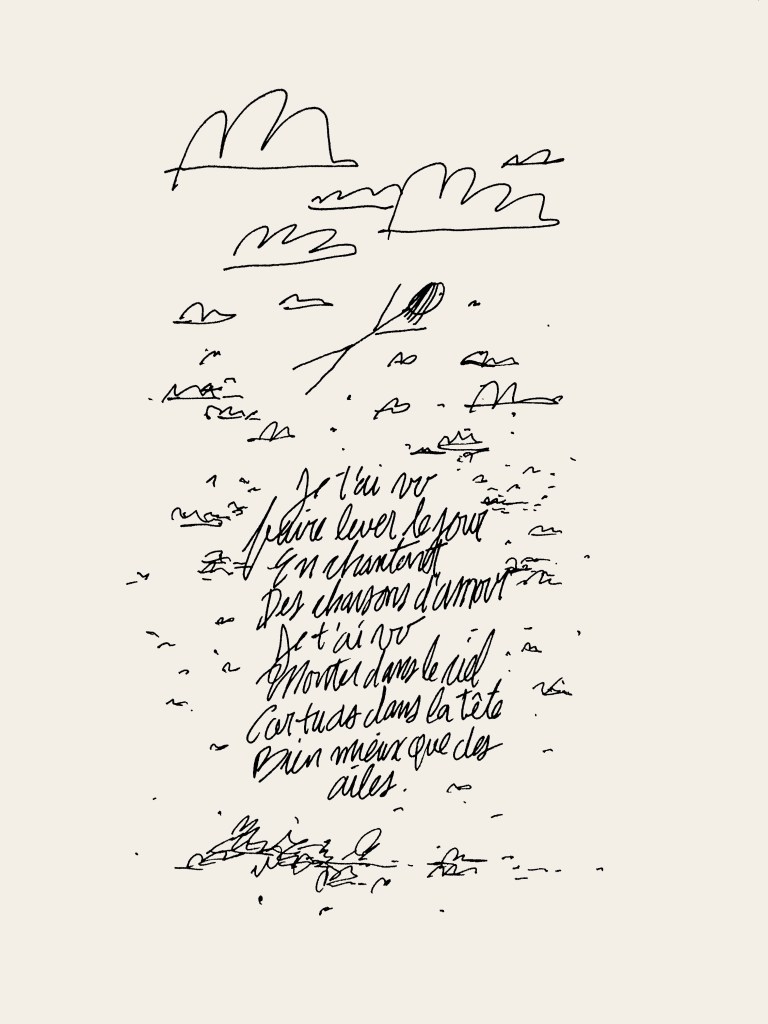 Je t'ai vu
faire lever le jour
En chantant
Des chansons d'amour
Je t'ai vu
Monter dans le ciel
Car tu as dans la tête
Bien mieux que des
ailes.